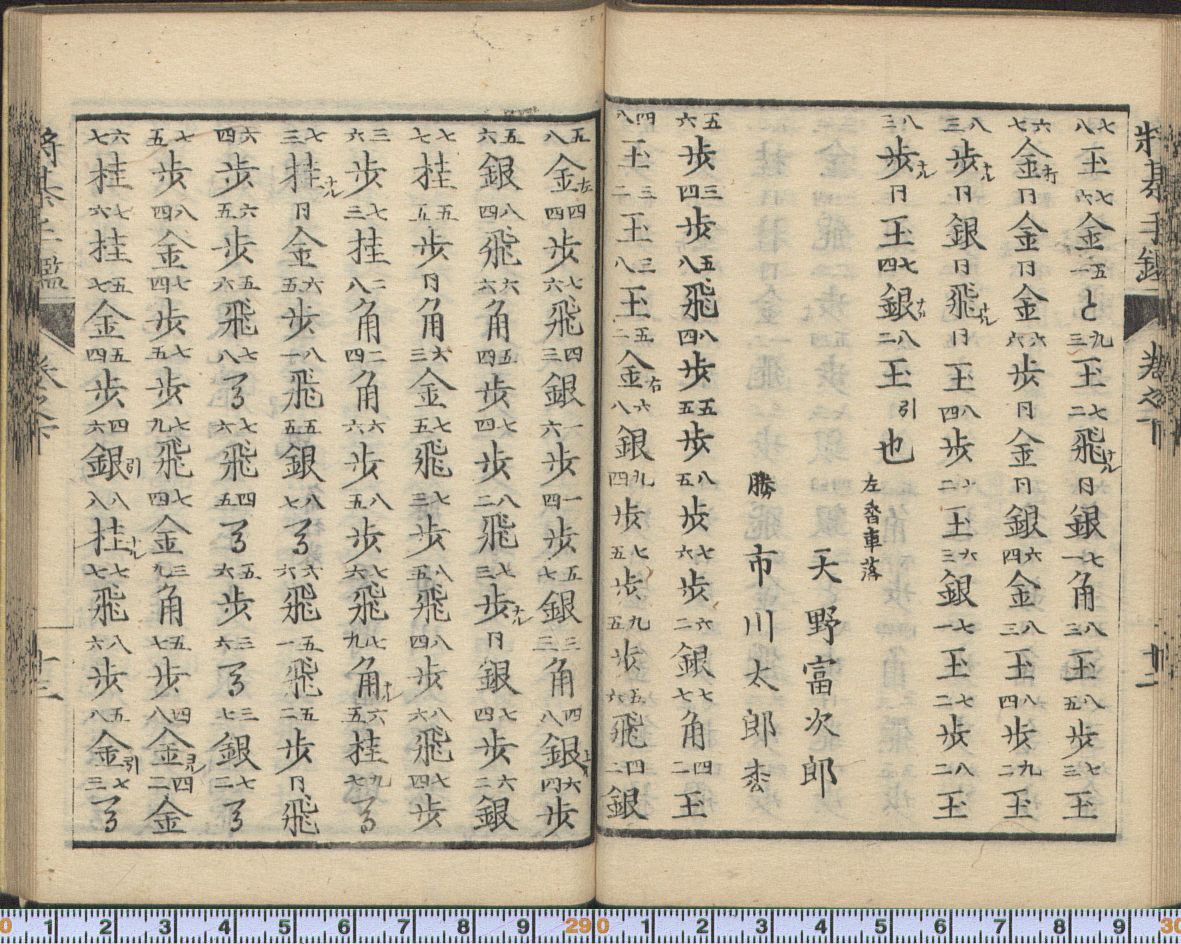 将棊手鑑 巻之下 廿二
七八玉 七六金 五一と 九三玉 七二飛ナル 同銀 七一角 八二玉 八五歩 七三玉
六七金打 同金 同金 六六歩 同金 同銀 六四金 八三玉 八四歩 九二玉
八三歩ナル 同銀 同飛ナル 同玉 八四歩 玉 六三銀 七一玉 七二歩 八二玉
八三歩ナル 同玉 七四銀ナル 八二玉 引也
左香車落
天野富次郎
勝 市川太郎松
五六歩 三四歩 五八飛 八四歩 五五歩 八五歩 七六歩 六二銀 七七角 四二玉
四八玉 三二玉 三八玉 五二金右 六八銀 九四歩 七五歩 九五歩 五六飛 四二銀
五八金左 四四歩 七六飛 四三銀 一六歩 一四歩 五七銀 三三角 四八銀上 六四歩
五六銀 八四飛 六六角 五四歩 七四歩 八二飛 七三歩ナル 同銀 七四歩 六二銀
七七桂 五五歩 同角 六三金 七五飛 七三歩 八五飛 八四歩 八六飛 七四歩
三六歩 七三桂 二八角 二四角 六六歩 八五歩 七六飛 七九角ナル 六五桂 九七馬
七三桂ナル 同金 六五歩 八一飛 五五銀 八七馬 六六飛 五一飛 五二歩 同飛
六四歩 六五歩 五六飛 七八馬 七六飛 四五馬 五六歩 三六馬 三七銀 七二馬
七五歩 八四金 七四歩 七五歩 七九飛 七四金 三九角 五七歩 四八金引 四二金
六七桂 七六桂 五七金 五四歩 四六銀引 八八桂ナル 七七飛 八六歩 五八金引 七三馬
将棊手鑑 巻之下 廿三